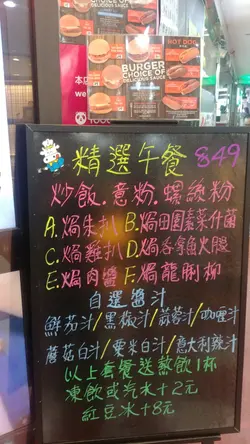 HOT DOG
BURGER
CHOICE OF
DELICIOUS SAUCE
精選午餐 $49
炒飯.意粉.螺絲粉
A.焗朱扒 B.焗田園素菜什菌
C.焗雞扒 D.焗吞拿魚火腿
E.焗肉醬 F.焗龍脷柳
自選醬汁
鮮茄汁/黑椒汁/蒜蓉汁/咖喱汁
蘑菇白汁/粟米白汁/意大利辣汁
以上套餐送熱飲1杯
凍飲或汽水+2元
紅豆冰+8元